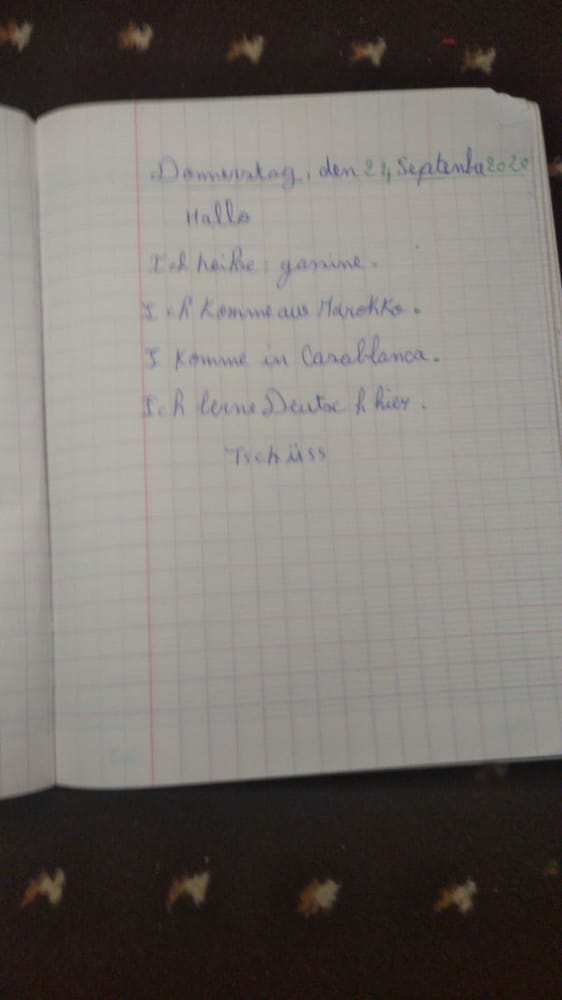 Donnerstag, den 24 September 2020
Hallo
Ich heiße: yasmine.
Ich Komme aus Marokko.
I komme in Casablanca.
Ich lerne Deutsch hier.
Tschüss